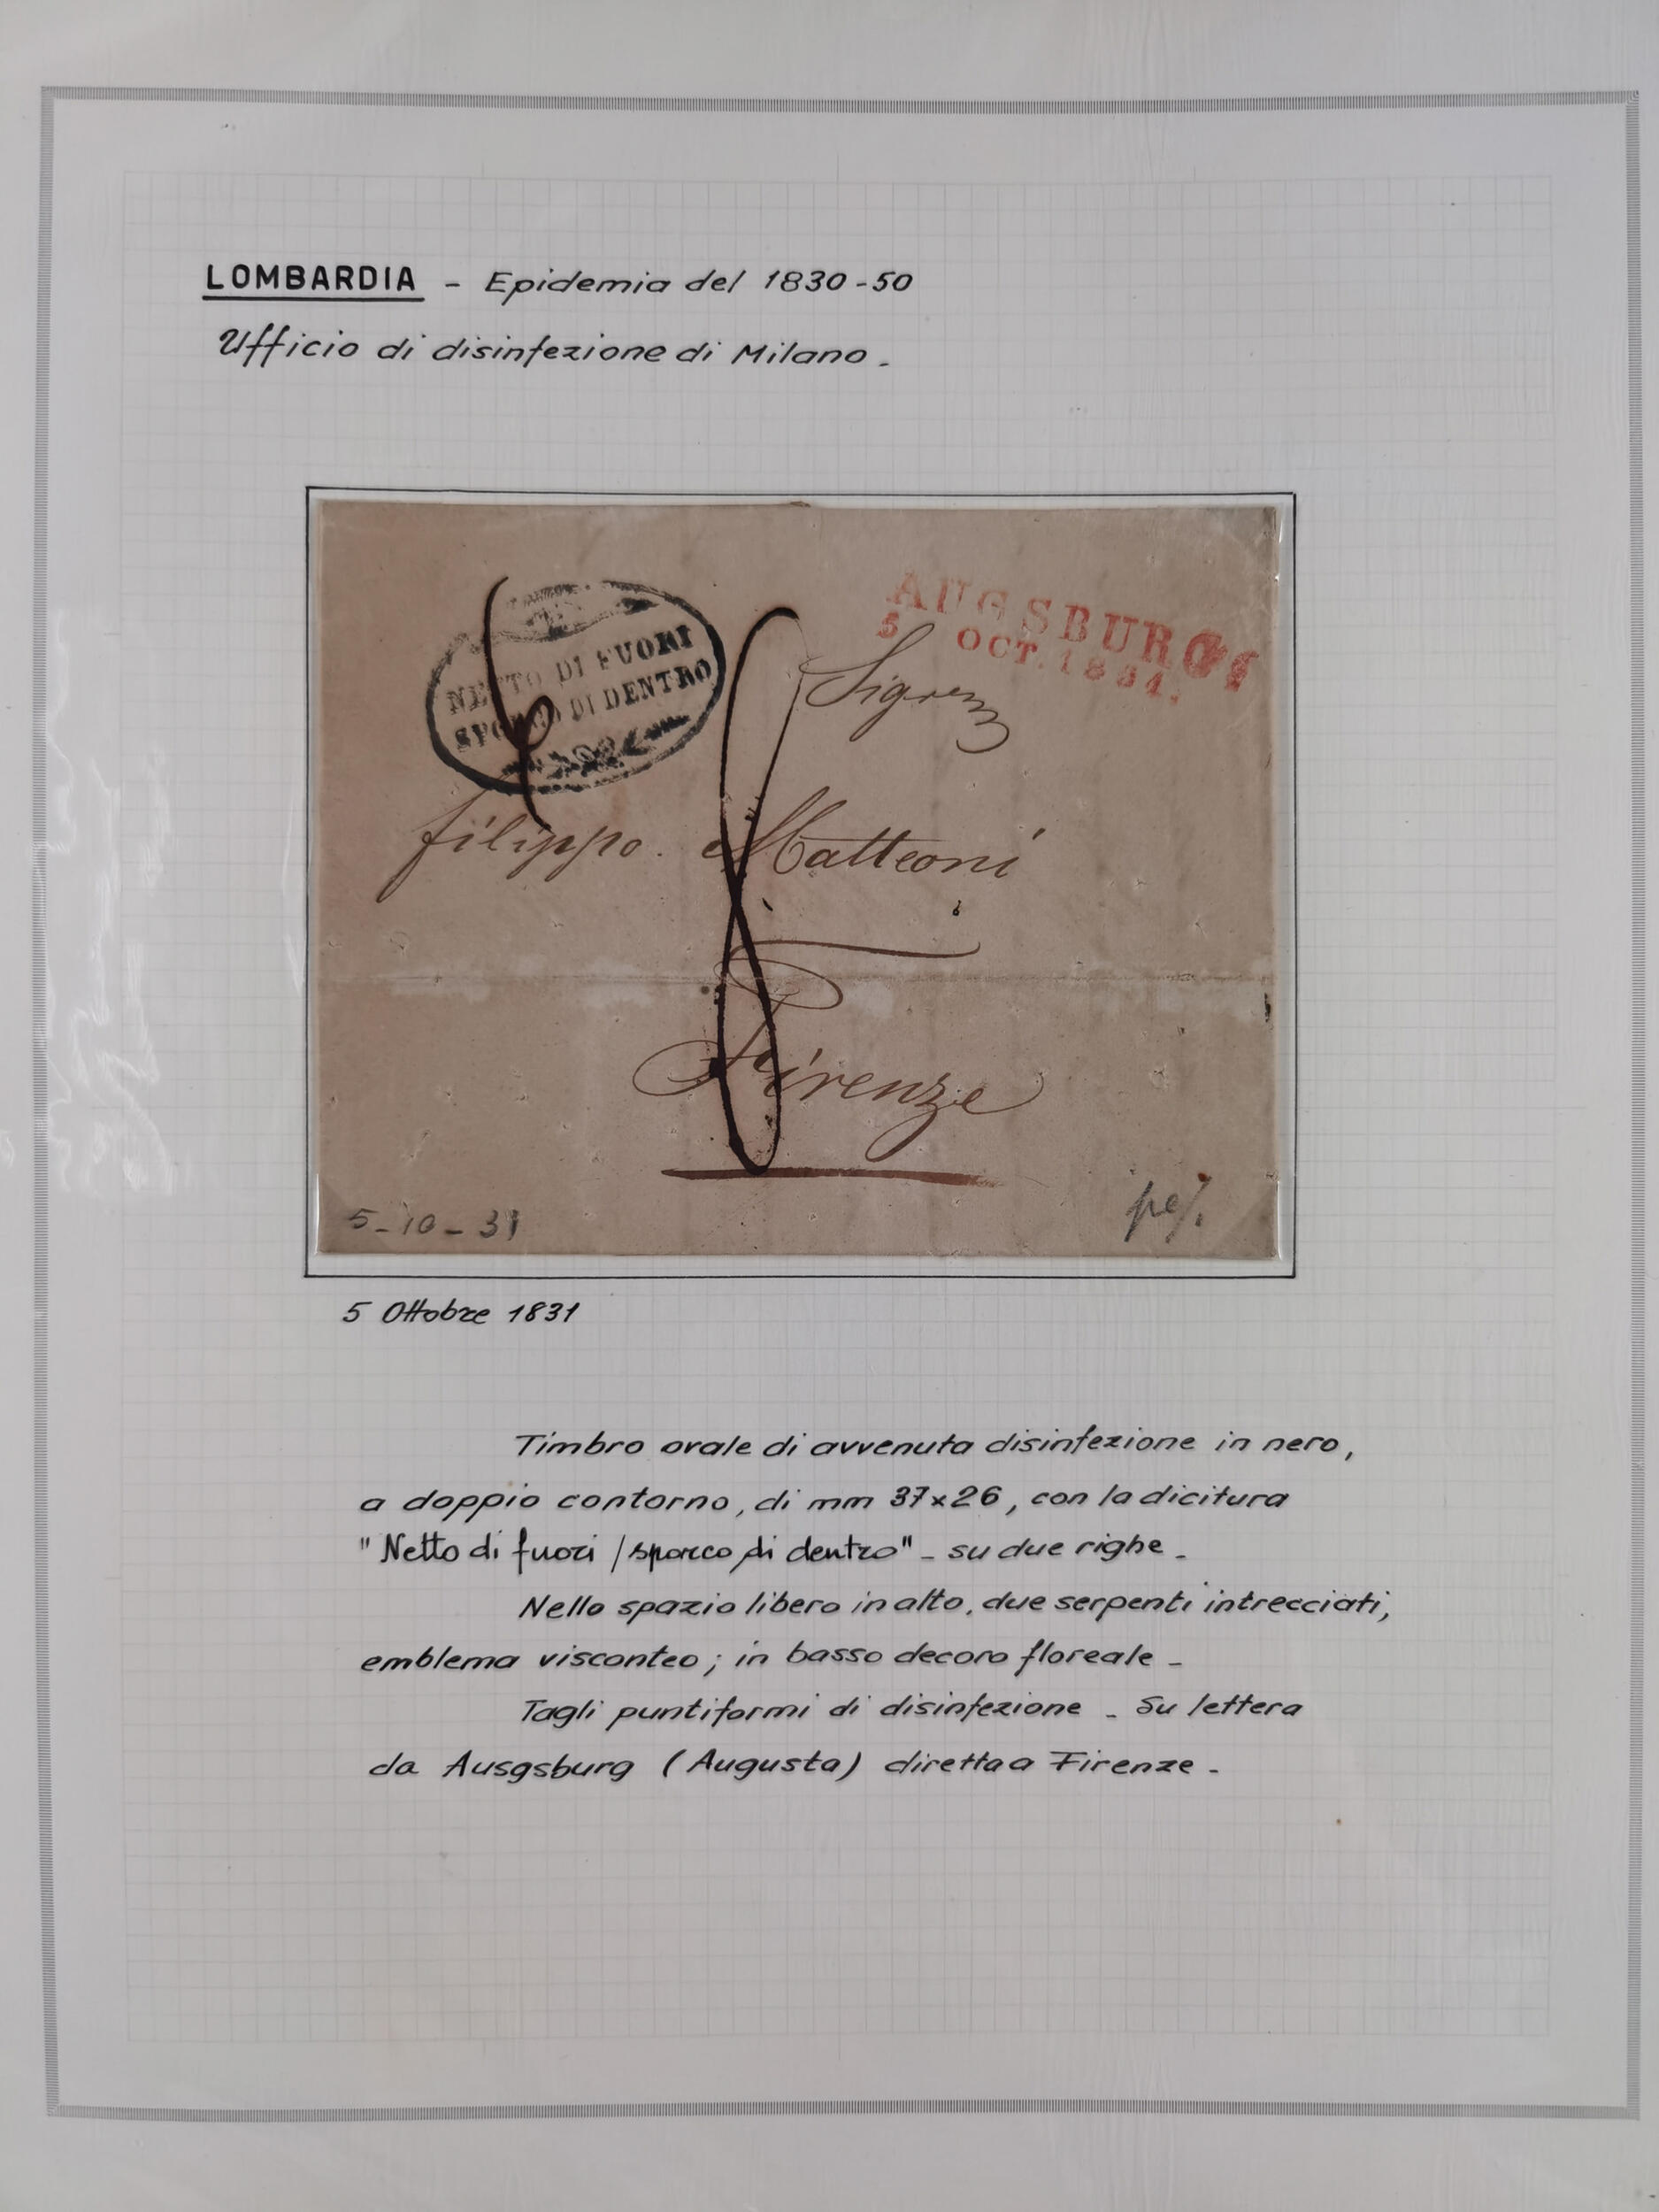 LOMBARDIA - Epidemia del 1830-50
Ufficio di disinfezione di Milano.
NETTO DI FUORI
SPORCO DI DENTRO
AUGSBURG
5 OCT. 1831.
Signor
filippo. Matteoni
Firenze
5-10-31
5 Ottobre 1831
Timbro ovale di avvenuta disinfezione in nero,
a doppio contorno, di mm 37x26, con la dicitura
"Netto di fuori / sporco di dentro" - su due righe -
Nello spazio libero in alto, due serpenti intrecciati,
emblema visconteo; in basso decoro floreale -
Tagli puntiformi di disinfezione - Su lettera
da Ausgsburg (Augusta) diretta a Firenze -